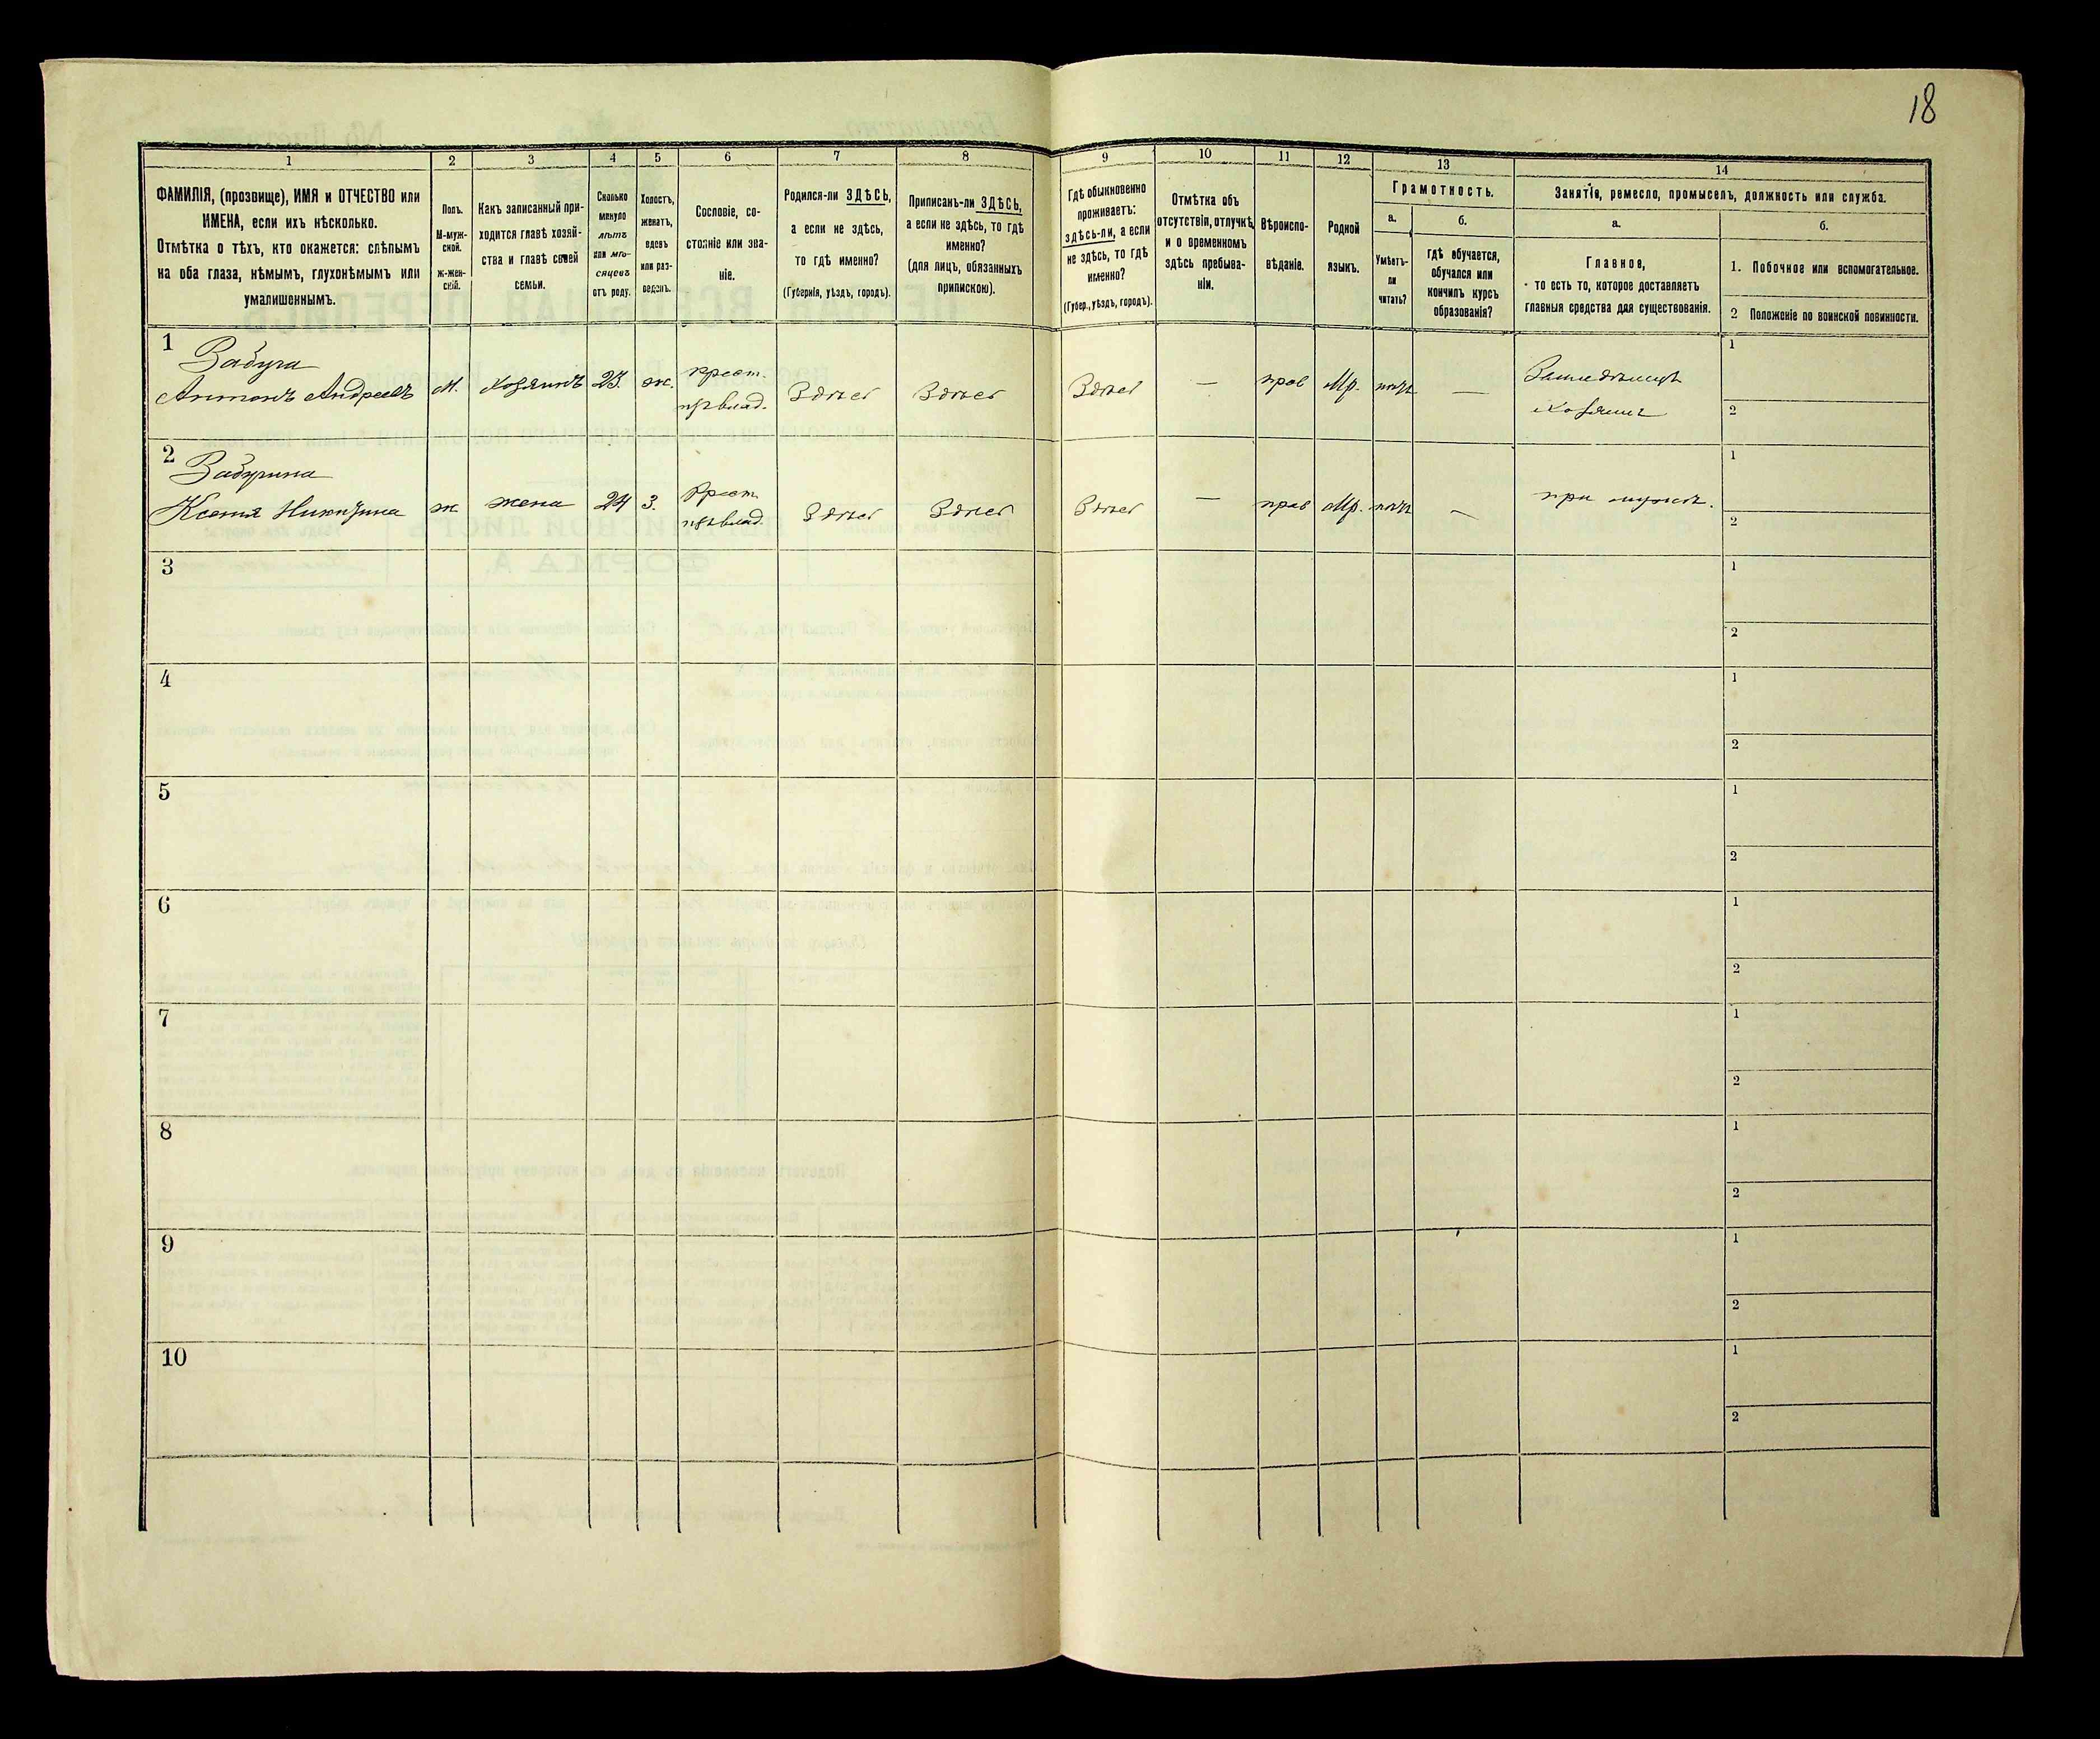 18
1 2 3 4 5 6 7 8 9 10 11 12 13 14
ФАМИЛІЯ, (прозвище), ИМЯ и ОТЧЕСТВО или
ИМЕНА, если ихъ нѣсколько.
Отмѣтка о тѣхъ, кто окажется: слѣпымъ
на оба глаза, нѣмымъ, глухонѣмымъ или
умалишеннымъ.
Полъ.
М-муж-
ской.
Ж-жен-
скій.
Какъ записанный при-
ходится главѣ хозяй-
ства и главѣ своей
семьи.
Сколько
минуло
лѣтъ
или мѣ-
сяцевъ
отъ роду.
Холостъ,
женатъ,
вдовъ
или раз-
веденъ.
Сословіе, со-
стояніе или зва-
ніе.
Родился-ли ЗДѢСЬ,
а если не здѣсь,
то гдѣ именно?
(Губернія, уѣздъ, городъ).
Приписанъ-ли ЗДѢСЬ,
а если не здѣсь, то гдѣ
именно?
(для лицъ, обязанныхъ
припискою).
Гдѣ обыкновенно
проживаетъ:
здѣсь-ли, а если
не здѣсь, то гдѣ
именно?
(Губер., уѣздъ, городъ).
Отмѣтка объ
отсутствіи, отлучкѣ
и о временномъ
здѣсь пребыва-
ніи.
Вѣроиспо-
вѣданіе.
Родной
языкъ.
Грамотность.
а.
Умѣетъ-
ли
читать?
б.
Гдѣ обучается,
обучался или
кончилъ курсъ
образованія?
Занятіе, ремесло, промыселъ, должность или служба.
а.
Главное,
то есть то, которое доставляетъ
главныя средства для существованія.
б.
1. Побочное или вспомогательное.
2 Положеніе по воинской повинности.
1 Забуга
Антонъ Андреевъ М. Хозяинъ 23. ж. крест. Здѣсь Здѣсь Здѣсь — прав Мр. нѣтъ — Земледѣлецъ
Хозяинъ
1
2
2
Ксенія ж жена 24 З. Крест. Здѣсь Здѣсь Здѣсь — прав Мр. нѣтъ — при мужѣ.
1
2
3
1
2
4
1
2
5
1
2
6
1
2
7
1
2
8
1
2
9
1
2
10
1
2